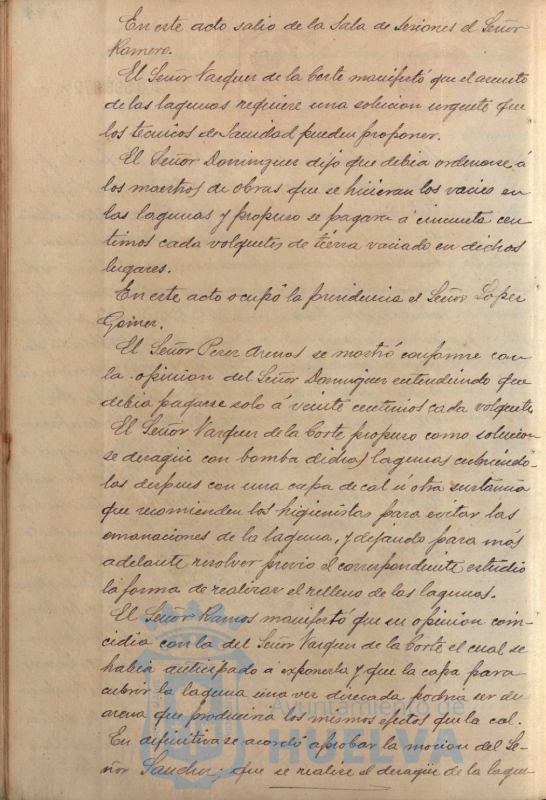 En este acto salio de la Sala de Sesiones el Señor
Romero.
El Señor Vazquez de la Corte manifestó que el asunto
de las lagunas requiere una solucion urgente que
los técnicos de Sanidad pueden proponer.
El Señor Dominguez dijo que debia ordenarse á
los maestros de obras que se hicieran los vacies en
las lagunas y propuso se pagara á cincuenta cen-
timos cada volquete de tierra vaciado en dichos
lugares.
En este acto ocupó la presidencia el Señor Lopez
Gomez.
El Señor Perez Arenas se mostró conforme con
la opinion del Señor Dominguez entendiendo que
debia pagarse solo á veinte centimos cada volquete.
El Señor Vazquez de la Corte propuso como solucion
se desagüe con bomba dichas lagunas cubriendo-
las despues con una capa de cal ú otra sustancia
que recomienden los higienistas para evitar las
emanaciones de la laguna, y dejando para más
adelante resolver previo el correspondiente estudio
la forma de realizar el relleno de las lagunas.
El Señor Ramos manifestó que su opinion coin-
cidia con la del Señor Vazquez de la Corte el cual se
habia anticipado á exponerla y que la capa para
cubrir la laguna una vez disecada podria ser de
arena que produciria los mismos efectos que la cal.
En definitiva se acordó aprobar la mocion del Se-
ñor Sanchez; que se realice el desagüe de la lagu-
Ayuntamiento de
HUELVA